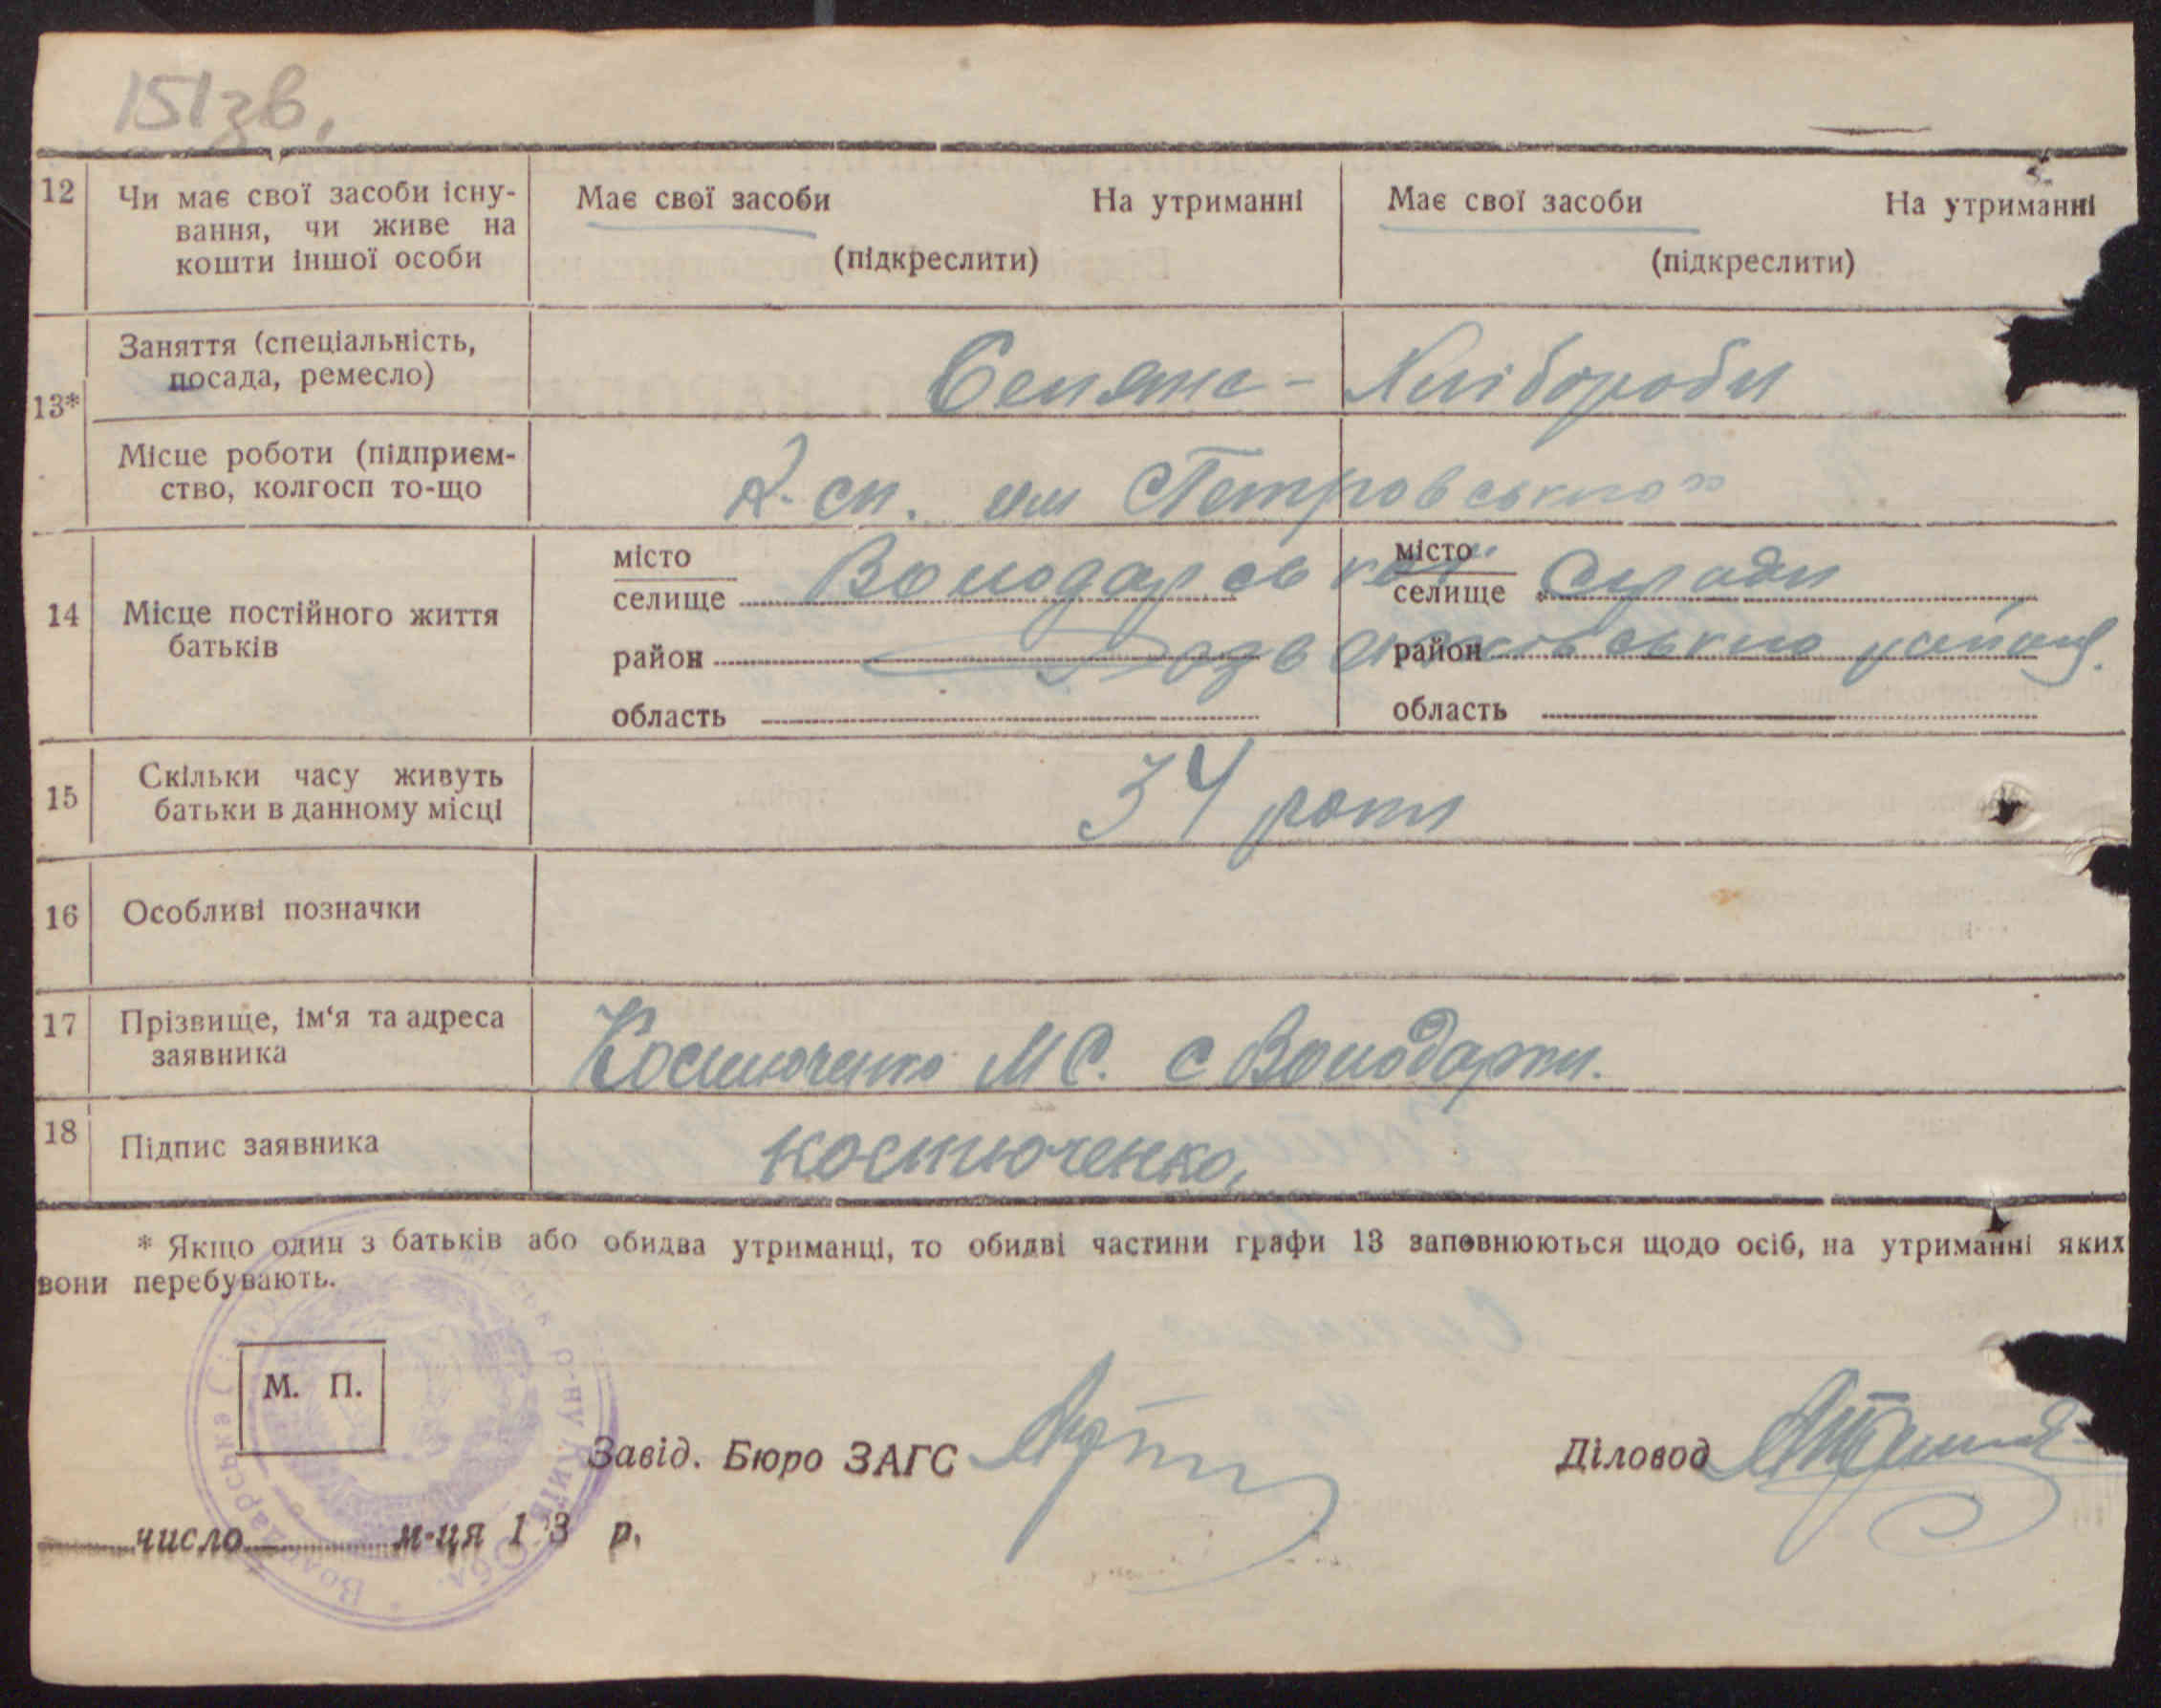 151зв.
12 Чи має свої засоби існу- Має свої засоби На утриманні Має свої засоби На утриманні
вання, чи живе на
кошти іншої особи (підкреслити) (підкреслити)
13* Заняття (спеціальність,
посада, ремесло) Селяне - Хлібороби
Місце роботи (підприєм-
ство, колгосп то-що к-сп. ім Петровського"
14 Місце постійного життя
батьків
місто
селище Володарської місто
селище сільради
район район району
область область
15 Скільки часу живуть
батьки в данному місці 34 роки
16 Особливі позначки
17 Прізвище, ім'я та адреса
заявника Костюченко М С. с Володарка.
18 Підпис заявника костюченко,
* Якщо один з батьків або обидва утриманці, то обидві частини графи 13 заповнюються щодо осіб, на утриманні яких
вони перебувають.
М. П.
Завід. Бюро ЗАГС Діловод
число м-ця 1 3 р.
Володарська р-ну Київ Обл.